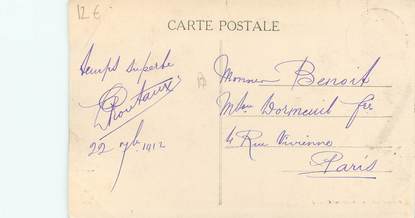 12 €
CARTE POSTALE
temps superbe
22 7bre 1912
Monsieur Benoit
Dormeuil fre
4 Rue Vivienne
Paris